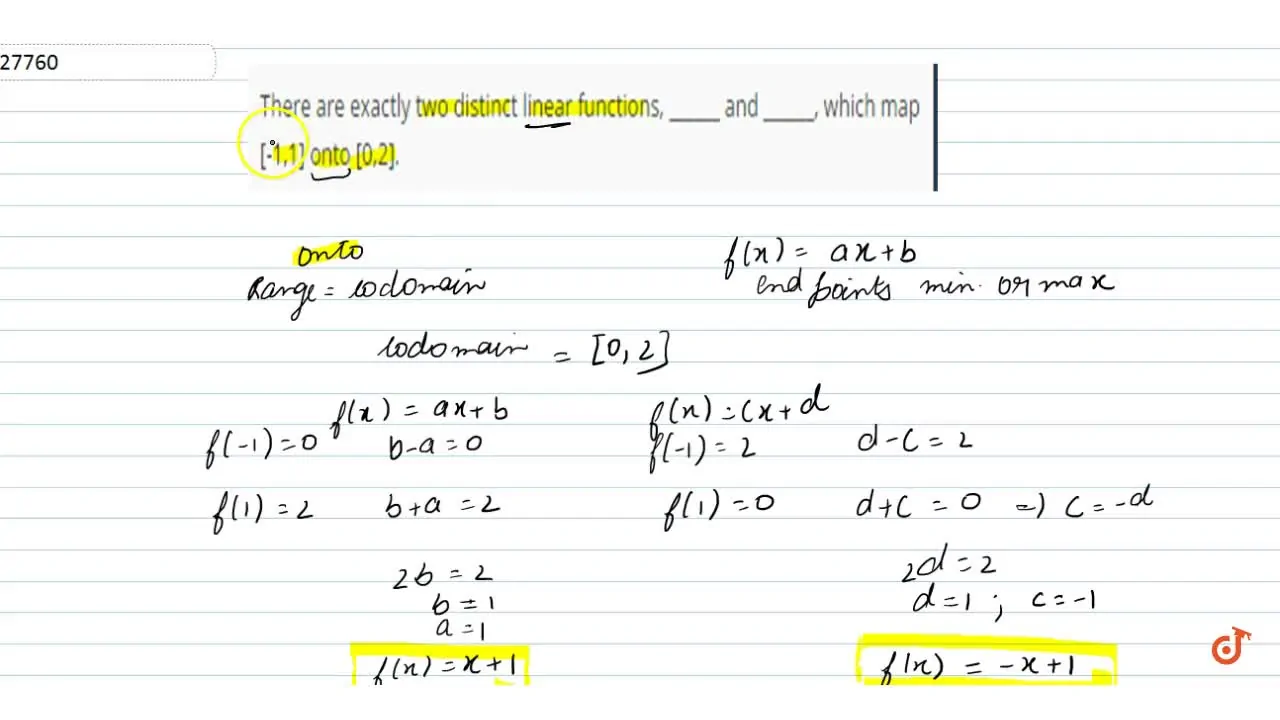 27760
There are exactly two distinct linear functions, _____ and _____, which map
[-1,1] onto [0,2].
onto
Range = codomain
f(x) = ax+b
end points min. or max
codomain = [0, 2]
f(x) = ax+b
f(-1) = 0 b-a = 0
f(1) = 2 b+a = 2
2b = 2
b = 1
a = 1
f(x) = x+1
f(x) = cx+d
f(-1) = 2 d-c = 2
f(1) = 0 d+c = 0 => c = -d
2d = 2
d = 1 ; c = -1
f(x) = -x+1